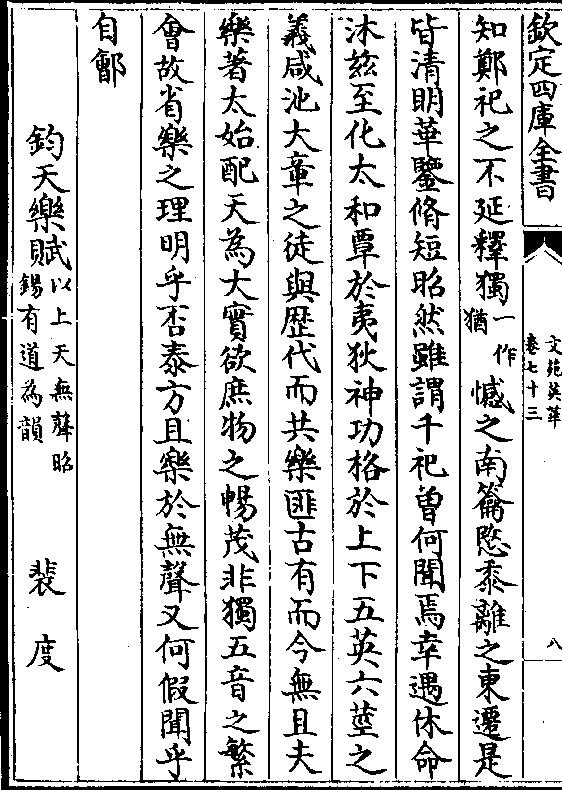 欽定四庫全書
文苑英華
卷七十三
八
知鄭祀之不延釋獨一作猶憾之南籥愍黍離之東遷是
皆清明華鑒脩短昭然雖謂千祀曾何聞焉幸遇休命
沐兹至化太和覃於夷狄神功格於上下五英六莖之
義咸池大章之徒與歷代而共樂匪古有而今無且夫
樂著太始配天為大實欲庶物之暢茂非獨五音之繁
會故省樂之理明乎否泰方且樂於無聲又何假聞乎
自鄶
鈞天樂賦以上天無聲昭錫有道為韻 裴度